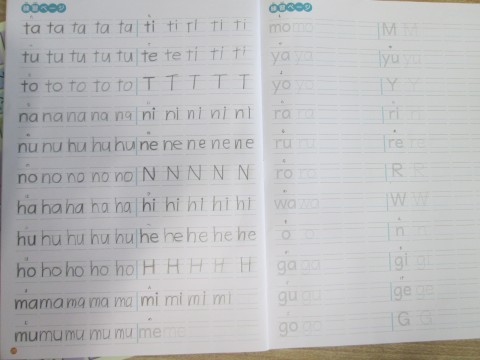 練習ページ
ta ta ta ta ta ti ti ri ti ti
tu tu tu tu tu te te ti ti ti
to to to to to T T T T T
na na na na na ni ni ni ni ni
nu nu nu nu nu ne ne ne ne ne
no no no no no N N N N N
ha ha ha ha ha hi hi hi hi hi
hu hu hu hu hu he he he he he
ho ho ho ho ho H H H H H
ma ma ma ma ma mi mi mi mi
mu mu mu mu mu me me
練習ページ
mo mo M M
ya ya yu yu
yo yo Y Y
ra ra ri ri
ru ru re re
ro ro R R
wa wa W W
o o n n
ga ga gi gi
gu gu ge ge
go go G G